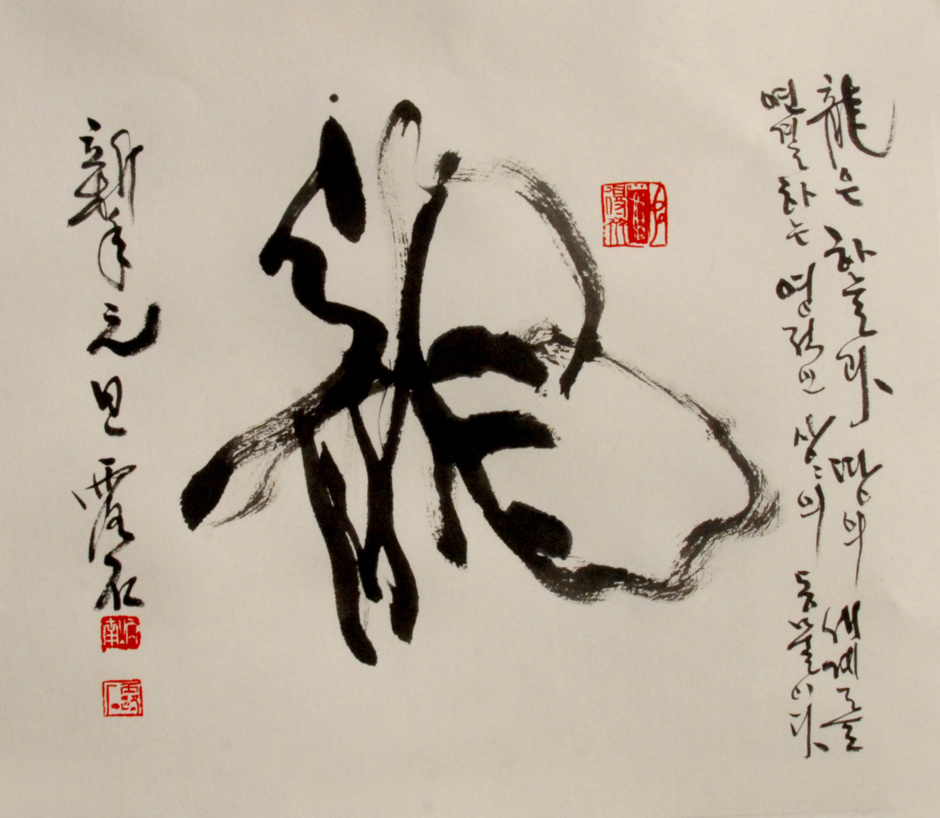 龍은 하늘과 땅의 세계를
연결하는 영적인 상상의 동물이다
龍
新年元旦